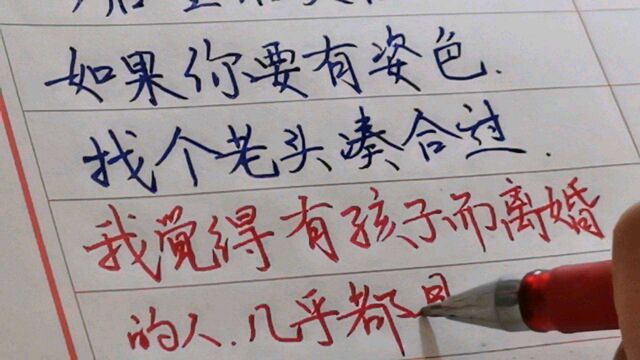 如果你要有姿色.
找个老头凑合过.
我觉得有孩子而离婚
的人.几乎都